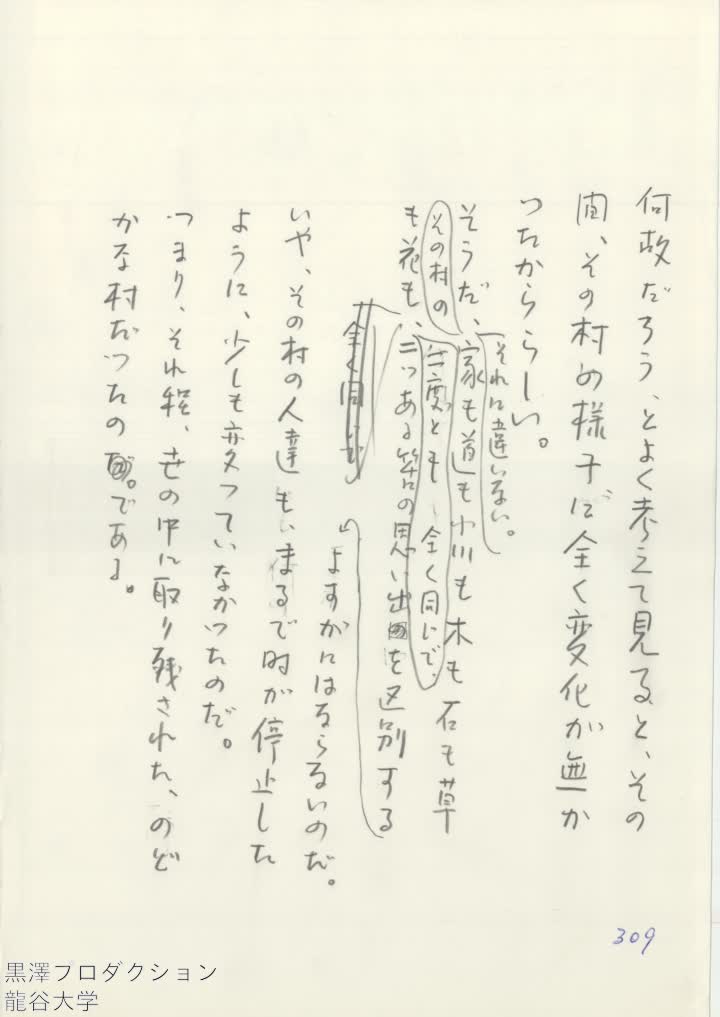 何故だろう、とよく考えて見ると、その
間、その村の様子で全く変化が無か
ったかららしい。
それに違いない。
そうだ、家も道も小川も木も石も草
その村の
廿度とも 全く同じで、
も花も、二つある筈の思い出を区別する
全く同じで
よすがにはならないのだ。
いや、その村の人達も、まるで時が停止した
ように、少しも変っていなかったのだ。
つまり、それ程、世の中に取り残された、のど
かな村だったのである。
309
黒澤プロダクション
龍谷大学